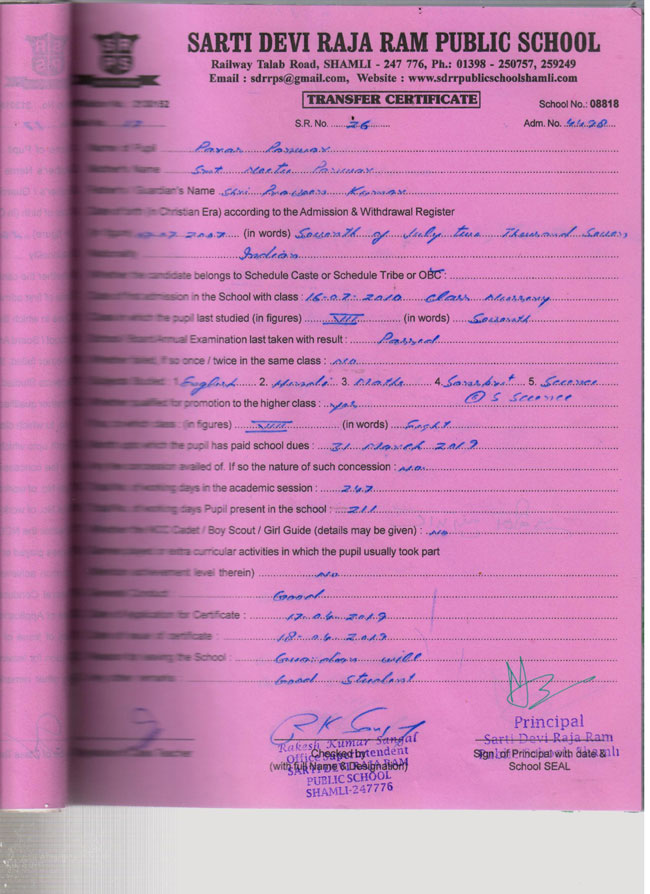 SARTI DEVI RAJA RAM PUBLIC SCHOOL
Railway Talab Road, SHAMLI - 247 776, Ph.: 01398 - 250757, 259249
Email : sdrrps@gmail.com, Website : www.sdrrpublicschoolshamli.com
TRANSFER CERTIFICATE
School No.: 08818
S.R. No. 26 Adm. No. 4478
Name of Pupil Panwar
Mother's Name Smt Neetu Panwar
Guardian's Name Shri Praveen Kumar
(in Christian Era) according to the Admission & Withdrawal Register
07 2007 (in words) Seventh of July two Thousand Seven
Indian
Whether the candidate belongs to Schedule Caste or Schedule Tribe or OBC :
Date of first admission in the School with class : 16-07-2010 Class Nursery
Class in which the pupil last studied (in figures) VII (in words) Seventh
Annual Examination last taken with result : Passed
if so once / twice in the same class : NO
1. English 2. Hindi 3. Maths 4. Sanskrit 5. Science
6 S Science
qualified for promotion to the higher class : yes
(in figures) VIII (in words) Eight
which the pupil has paid school dues : 31 March 2019
concession availed of. If so the nature of such concession : No
working days in the academic session : 247
working days Pupil present in the school : 211
NCC Cadet / Boy Scout / Girl Guide (details may be given) : No
extra curricular activities in which the pupil usually took part
achievement level therein) No
General Conduct Good
Date of Application for Certificate : 17-04-2019
Date of issue of certificate : 18-04-2019
Reason for leaving the School : Guardian will
Any other remarks Good Student
Principal
Sarti Devi Raja Ram
Public School Shamli
Rakesh Kumar Sangal
Office Superintendent
SARTI DEVI RAJA RAM
PUBLIC SCHOOL
SHAMLI-247776
Checked by
(with full Name & Designation)
Sign. of Principal with date &
School SEAL